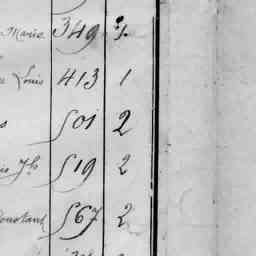 Marie 349 2
Louis 413 1
s 501 2
Jh 519 2
Constant 567 2